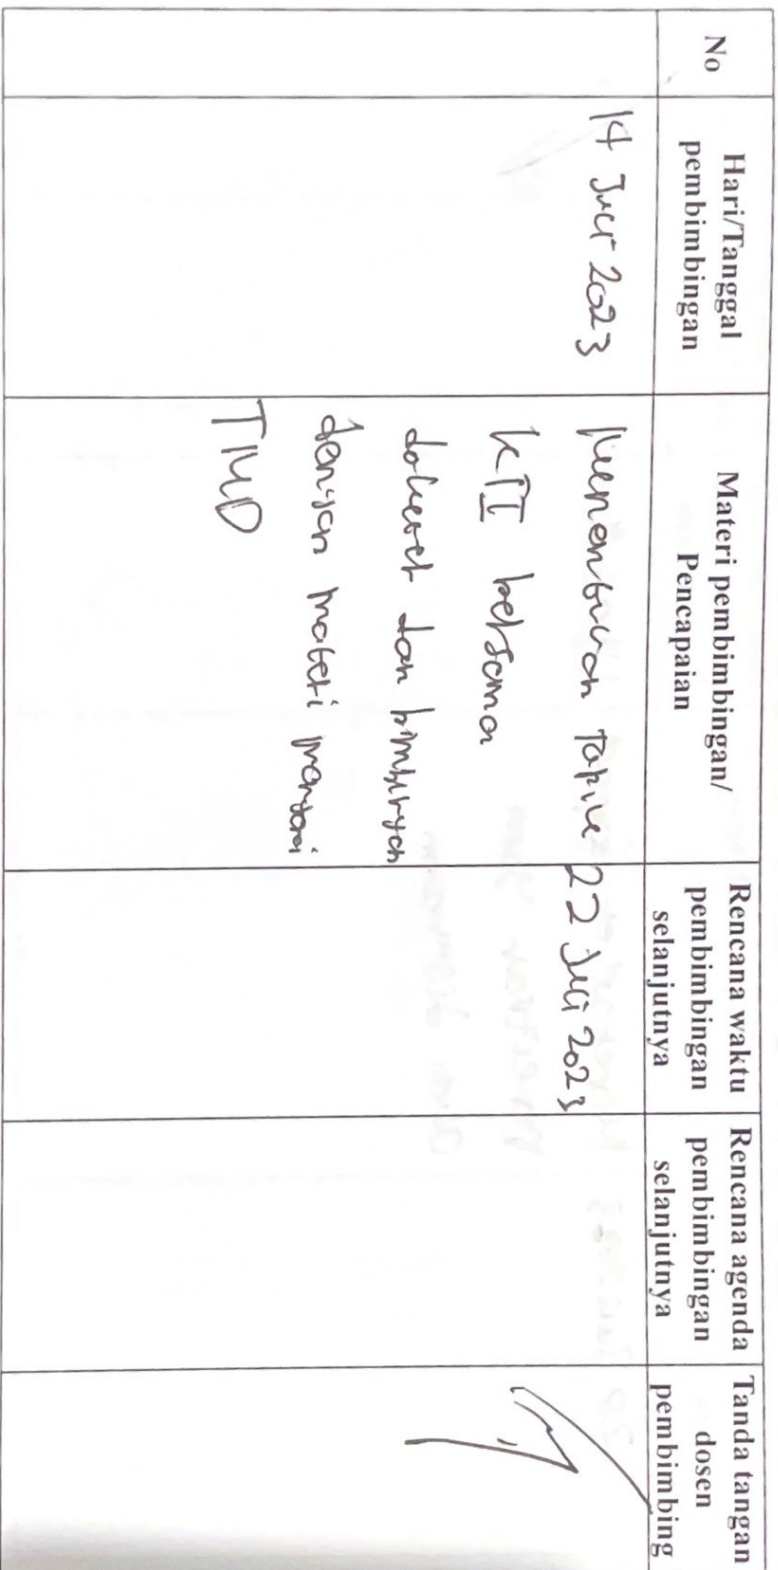 No
Hari/Tanggal
pembimbingan
Materi pembimbingan/
Pencapaian
Rencana waktu
pembimbingan
selanjutnya
Rencana agenda
pembimbingan
selanjutnya
Tanda tangan
dosen
pembimbing
14 Juli 2023
Menentukan topik
KTI bersama
dan
dengan materi
22 Juli 2023